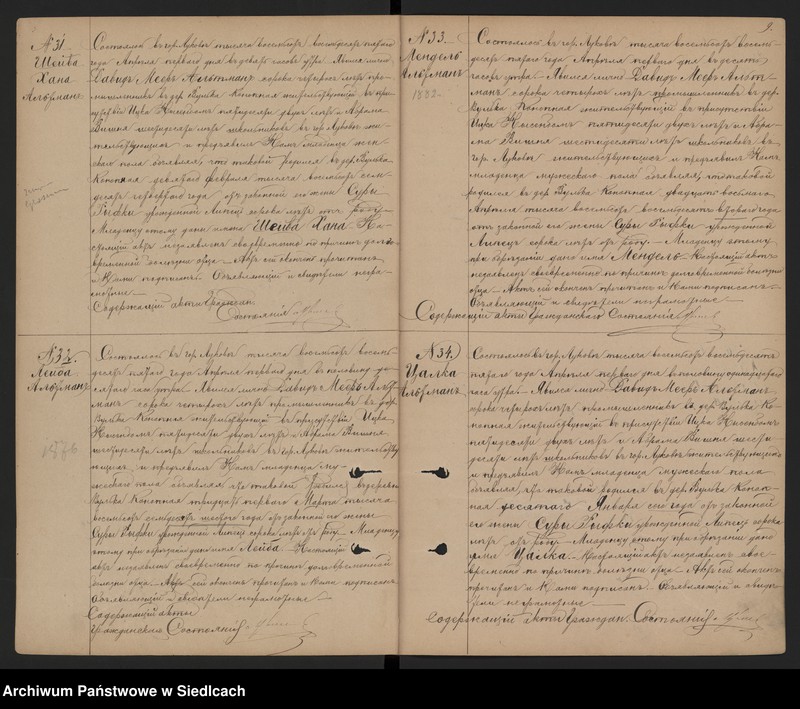 N 31.
Шейва
Хана
Альтманъ
Состоялось въ гор. Луковѣ тысяча восемьсотъ восемьдесятъ пятаго
года Апрѣля перваго дня въ десять часовъ утра. Явился лично
Давидъ Мееръ Альтманъ сорока четырехъ лѣтъ про-
мышленникъ въ дер. Вулька Конопная жительствующій въ при-
сутствіи Ицка пятидесяти двухъ лѣтъ и Абрама
Вишня шестидесяти лѣтъ школьниковъ въ гор. Луковѣ жи-
тельствующихъ и предъявилъ Намъ младенца жен-
скаго пола объявляя, что таковой родился въ дер. Вулька
Конопная девятаго февраля тысяча восемьсотъ семь-
десятъ года отъ законной его жены Суры
Рыфки урожденной Липецъ сорока лѣтъ отъ роду.
Младенцу этому дано имя Шейва Хана. На-
стоящій актъ незаявленъ своевременно по причинѣ долго-
временной болѣзни отца. Актъ сей окончен прочитанъ
и Нами подписанъ. Объявляющій и свидѣтели негра-
мотные.
Содержащій акты Граждан.
Состоянія
N 32.
Лейба
Альтманъ
1876
Состоялось въ гор. Луковѣ тысяча восемьсотъ восемь-
десятъ пятаго года Апрѣля перваго дня въ половину
часа утра. Явился лично Давидъ Мееръ Альт-
манъ сорока четырехъ лѣтъ промышленникъ въ дер.
Вулька Конопная жительствующій въ присутствіи Ицка
пятидесяти двухъ лѣтъ и Абрама Вишня
шестидесяти лѣтъ школьниковъ въ гор. Луковѣ жительству-
ющихъ и предъявилъ Намъ младенца му-
жескаго пола объявляя что таковой родился въ деревнѣ
Вулька Конопная тридцать перваго Марта тысяча
восемьсотъ семьдесятъ шестого года отъ законной его жены
Суры Рыфки урожденной Липецъ сорока лѣтъ отъ роду. Младенцу
этому при обрѣзаніи дано имя Лейба. Настоящій
актъ незаявленъ своевременно по причинѣ долговременной
болѣзни отца. Актъ сей окончен прочитанъ и Нами подписанъ.
Объявляющій и свидѣтели неграмотные.
Содержащій акты
Гражданскаго Состоянія
9.
N 33.
Мендель
Альтманъ
1882
Состоялось въ гор. Луковѣ тысяча восемьсотъ восемь-
десятъ пятаго года Апрѣля перваго дня въ десять
часовъ утра. Явился лично Давидъ Мееръ Альт-
манъ сорока четырехъ лѣтъ промышленникъ въ дер.
Вулька Конопная жительствующій въ присутствіи
Ицка пятидесяти двухъ лѣтъ и Абра-
ма Вишня шестидесяти лѣтъ школьниковъ въ
гор. Луковѣ жительствующихъ и предъявилъ Намъ
младенца мужескаго пола объявляя, что таковой
родился въ дер. Вулька Конопная двадцать восьмаго
Апрѣля тысяча восемьсотъ восемьдесятъ втораго года
отъ законной его жены Суры Рыфки урожденной
Липецъ сорока лѣтъ отъ роду. Младенцу этому
при обрѣзаніи дано имя Мендель. Настоящій актъ
незаявленъ своевременно по причинѣ долговременной болѣзни
отца. Актъ сей окончен прочитанъ и Нами подписанъ.
Объявляющій и свидѣтели неграмотные.
Содержащій акты Гражданскаго Состоянія
N 34.
Цалка
Альтманъ
Состоялось въ гор. Луковѣ тысяча восемьсотъ восемьдесятъ
пятаго года Апрѣля перваго дня въ половину одиннадцатаго
часа утра. Явился лично Давидъ Мееръ Альтманъ
сорока четырехъ лѣтъ промышленникъ въ дер. Вулька Ко-
нопная жительствующій въ присутствіи Ицка
пятидесяти двухъ лѣтъ и Абрама Вишня шести-
десяти лѣтъ школьниковъ въ гор. Луковѣ жительствующихъ
и предъявилъ Намъ младенца мужескаго пола
объявляя, что таковой родился въ дер. Вулька Коноп-
ная десятаго Января сего года отъ законной
его жены Суры Рыфки урожденной Липецъ сорока
лѣтъ отъ роду. Младенцу этому при обрѣзаніи дано
имя Цалка. Настоящій актъ незаявленъ свое-
временно по причинѣ болѣзни отца. Актъ сей окончен
прочитанъ и Нами подписанъ. Объявляющій и свидѣ-
тели неграмотные.
Содержащій акты Граждан. Состоянія
Archiwum Państwowe w Siedlcach